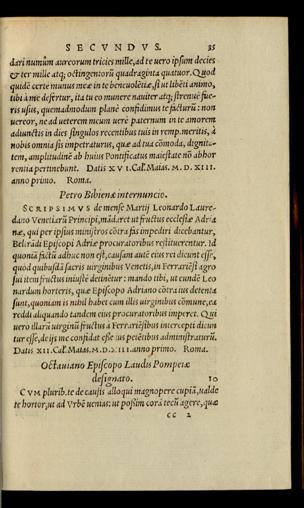 SECVNDVS. 35
dari numûm aureorum tricies mille, ad te uero ipsum decies
& ter mille atq; octingentorû quadraginta quatuor. Quod
quidē certe munus meæ in te beneuolētiæ, si ut libēti animo,
tibi à me defertur, ita tu eo munere nauiter atq; strenuē fue-
ris usus, quemadmodum planè confidimus te facturû: non
uereor, ne ad ueterem meum uerè paternum in te amorem
adiunctis in dies singulos recentibus tuis in remp. meritis, à
nobis omnia sis impetraturus, quæ ad tua cômoda, dignita-
tem, amplitudinē ab huius Pontificatus maiestate nô abhor
rentia pertinebunt. Datis XVI. Cal. Maias. M. D. XIII.
anno primo. Roma.
Petro Bibienæ internuncio.
SCRIPSIMVS de mense Martij Leonardo Laure-
dano Venetiarû Principi, mādaret ut fructus ecclesiæ Adria
næ, qui per ipsius ministros côtra fas impediri dicebantur,
Episcopi Adriæ procuratoribus restituerentur. Id
quoniā factû adhuc non est, causam autē eius rei dicunt esse,
quòd quibusdā sacris uirginibus Venetis, in Ferrariēsi agro
sui item fructus iniustè detinētur: mando tibi, ut eundē Leo
nardum horteris, quæ Episcopo Adriano côtra ius detenta
sunt, quoniam is nihil habet cum illis uirginibus cômune, ea
reddi aliquando tandem eius procuratoribus imperet. Qui
uero illarû uirginû fructus à Ferrariēsibus intercepti dicun
tur esse, de ijs me confidat esse ius petētibus administraturû.
Datis XII. Cal. Maias. M. D. XIII. anno primo. Roma.
Octauiano Episcopo Laudis Pompeiæ
designato. 10
CVM plurib. te de causis alloqui magnopere cupiā, ualde
te hortor, ut ad Vrbē uenias: ut possim corā tecû agere, quæ
CC 2